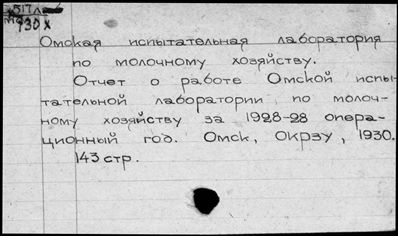 517л
930х
Омская испытательная лаборатория
по молочному хозяйству.
Отчет о работе Омской испы-
тательной лаборатории по молоч-
ному хозяйству за 1928-28 опера-
ционный год. Омск, ОКРЗУ, 1930.
143 стр.